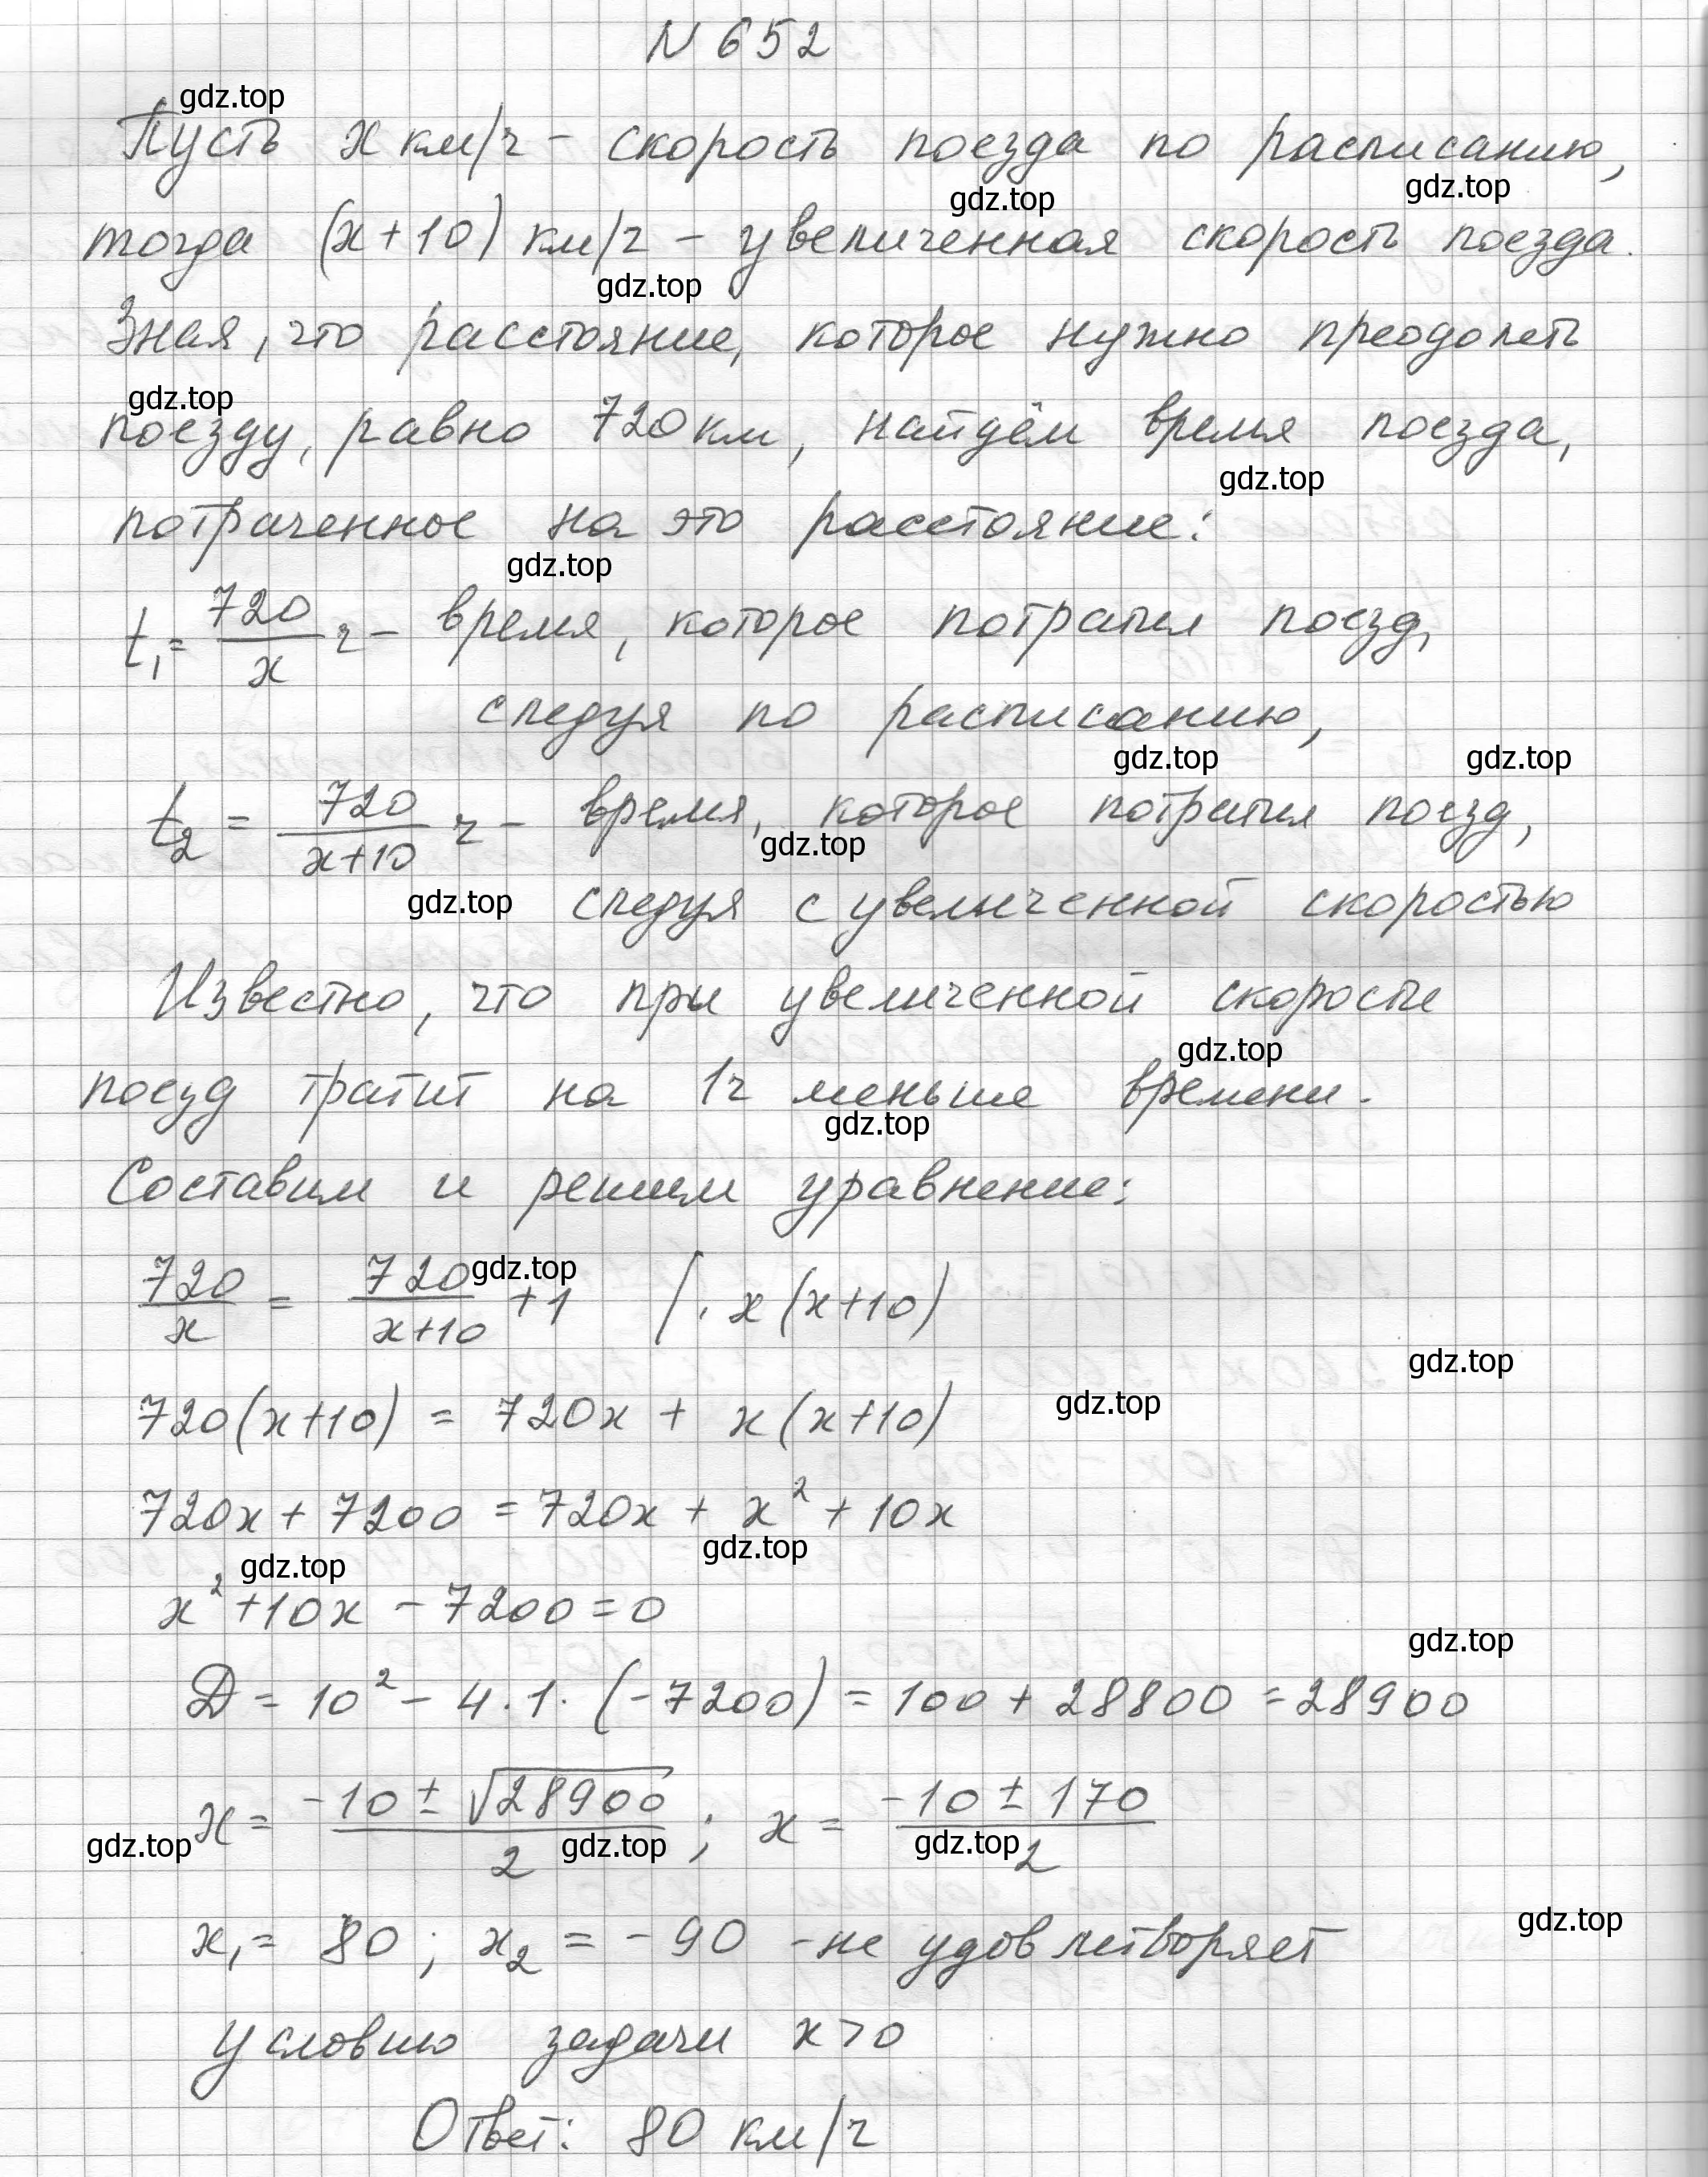 N 652
gdz.top
Пусть x км/ч – скорость поезда по расписанию,
gdz.top gdz.top
тогда (x+10) км/ч – увеличенная скорость поезда.
gdz.top
Зная, что расстояние, которое нужно преодолеть
gdz.top
поезду, равно 720 км, найдём время поезда,
gdz.top
потраченное на это расстояние:
gdz.top
t₁ = 720/x ч – время, которое потратил поезд,
следуя по расписанию,
gdz.top gdz.top
t₂ = 720/(x+10) ч – время, которое потратил поезд,
gdz.top
gdz.top следуя с увеличенной скоростью
Известно, что при увеличенной скорости
gdz.top
поезд тратит на 1ч меньше времени.
gdz.top
Составим и решим уравнение:
gdz.top
720/x = 720/(x+10) + 1 | · x(x+10)
gdz.top
gdz.top
720(x+10) = 720x + x(x+10)
720x + 7200 = 720x + x² + 10x
gdz.top
gdz.top
x² + 10x – 7200 = 0
gdz.top
D = 10² – 4·1·(–7200) = 100 + 28800 = 28900
x = (–10 ± √28900)/2 ; x = (–10 ± 170)/2
gdz.top gdz.top gdz.top
gdz.top
x₁ = 80 ; x₂ = –90 – не удовлетворяет
условию задачи x>0
Ответ: 80 км/ч